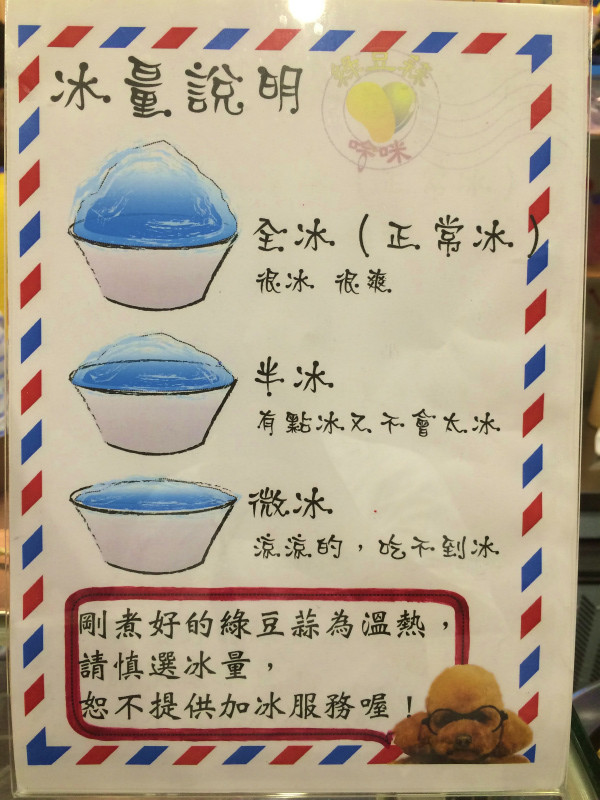 冰量說明
綠豆蒜
啥咪
全冰(正常冰)
很冰 很爽
半冰
有點冰又不會太冰
微冰
涼涼的，吃不到冰
剛煮好的綠豆蒜為溫熱，
請慎選冰量，
恕不提供加冰服務喔！